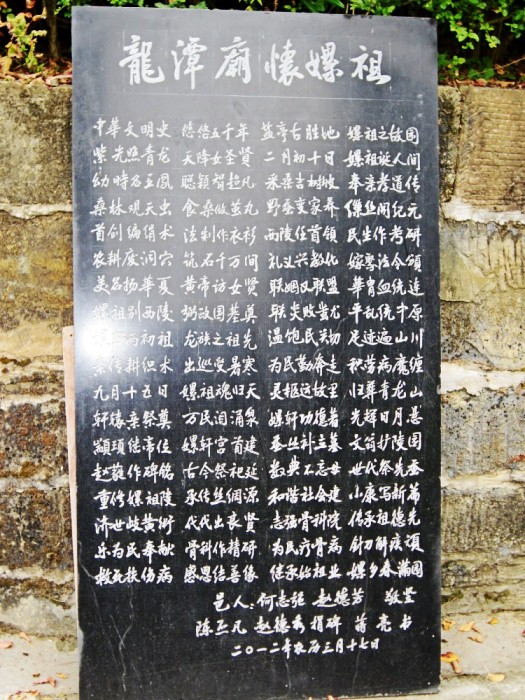 龍潭廟懷嫘祖
中华文明史 悠悠五千年 盐亭古胜地 嫘祖之故园
紫光照青龙 天降女圣贤 二月初十日 嫘祖诞人间
幼时名王凤 聪颖智超凡 采桑古树坡 奉亲孝道传
桑林观天虫 食桑做茧丸 野蚕变家养 缫丝开纪元
首创编绢术 法制作衣衫 西陵任首领 民生作考研
农耕废洞穴 筑石千万间 礼义兴教化 嫁娶法令颁
美名扬华夏 黄帝访女贤 联姻又联盟 华胄血统连
嫘祖别西陵 弼政国基奠 联炎败蚩尤 平乱统中原
初祖 龙族之祖先 温饱民关切 足迹遍山川
传耕织术 出巡受暑寒 为民勤奔走 积劳病魔缠
九月十五日 嫘祖魂归天 灵柩远故里 归葬青龙山
轩辕亲祭奠 万民泪涌泉 嫘轩功德著 光辉日月悬
颛顼继帝位 嫘轩宫首建 蚕丛补立墓 文翁扩陵园
赵蕤作碑铭 古今祭祀延 数典不忘母 世代祭先蚕
重修嫘祖陵 承传丝绸源 和谐社会建 小康写新篇
济世岐黄术 代代出良贤 志强骨科院 传承祖德先
乐为民奉献 骨科作精研 为民疗骨病 针刀解疾顽
救死扶伤病 感恩结善缘 继承始祖业 嫘乡春满园
邑人：何志强 赵德芳 敬堂
陈正凡 赵德秀 捐碑 蒲亮 书
二〇一二年农历三月十七日